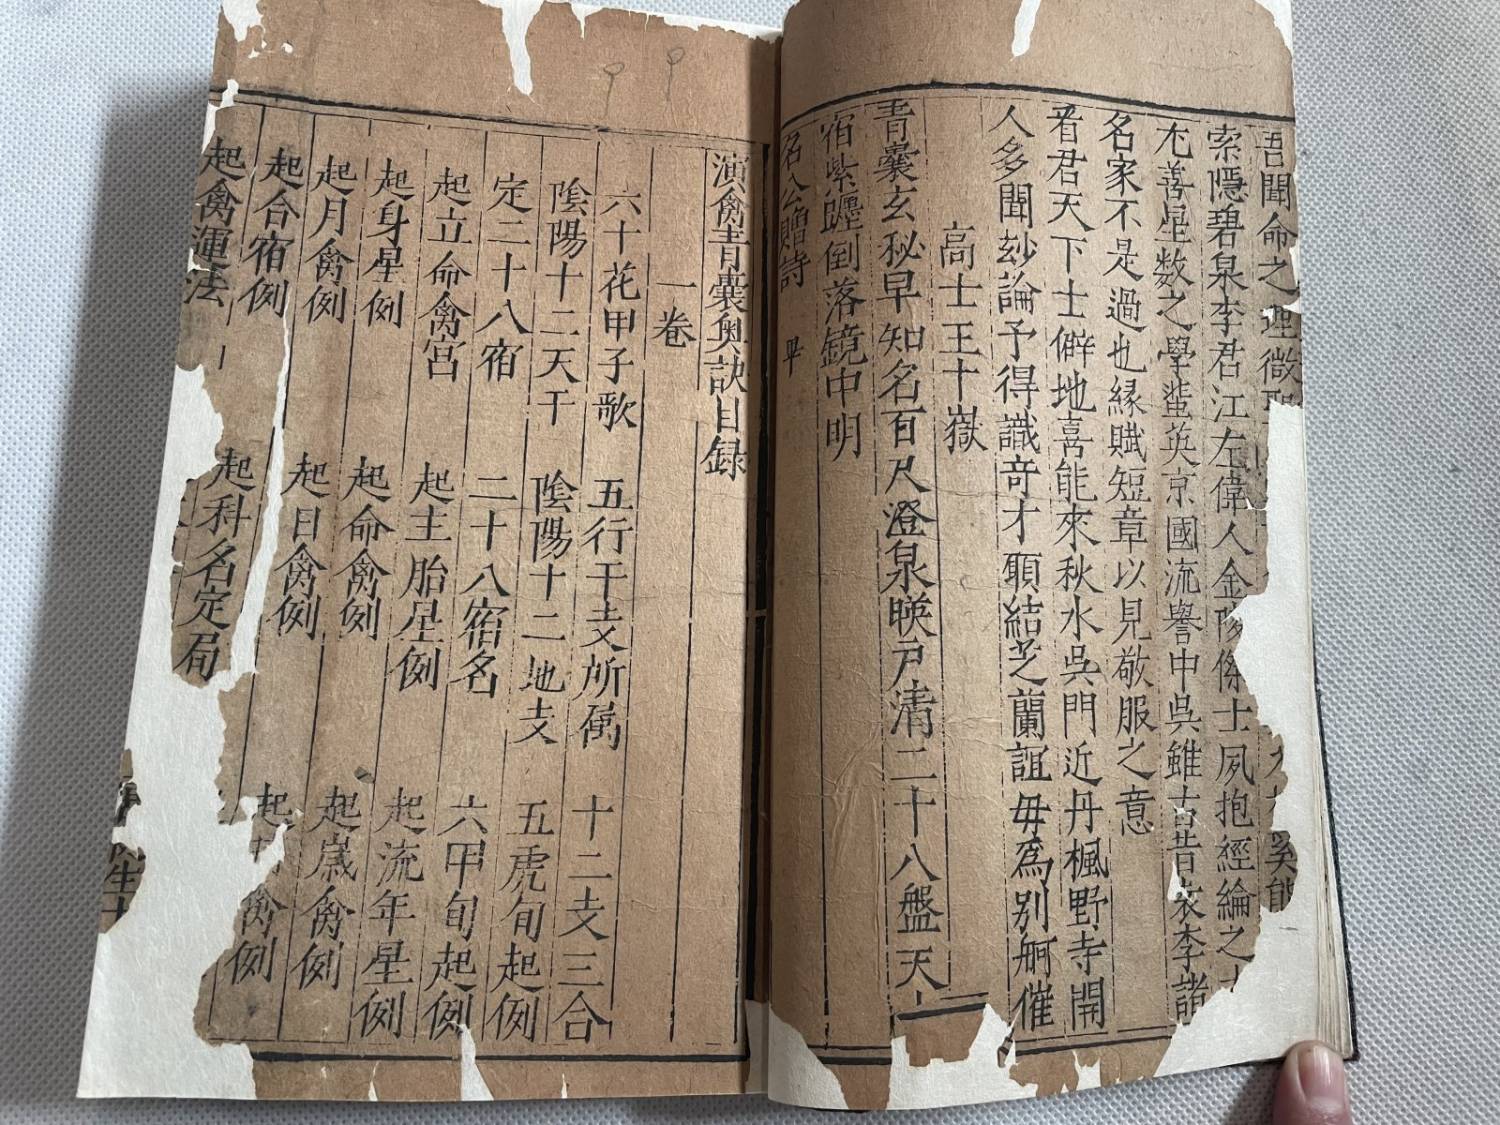 吾聞命之理微
索隱碧泉李君江左偉人金陵傑士夙抱經綸之
尤善星数之學蜚英京國流譽中吳雖古昔袁李諸
名家不是過也緣賦短章以見敬服之意
看君天下士僻地喜能來秋水吳門近丹楓野寺開
人多聞玅論予得識奇才願結芝蘭誼毋爲別舸催
高士王十嶽
青囊玄秘早知名百尺澄泉暎戸清二十八盤天
宿紫躔倒落鏡中明
名公贈詩 畢
演禽青囊奥訣目録
一卷
六十花甲子歌 五行干支所属 十二支三合
陰陽十二天干 陰陽十二地支 五虎旬起例
定二十八宿 二十八宿名 六甲旬起例
起立命禽宮 起主胎星例 起流年星例
起身星例 起命禽例 起歲禽例
起月禽例 起日禽例 起 禽例
起合宿例 起科名定局
起禽運法